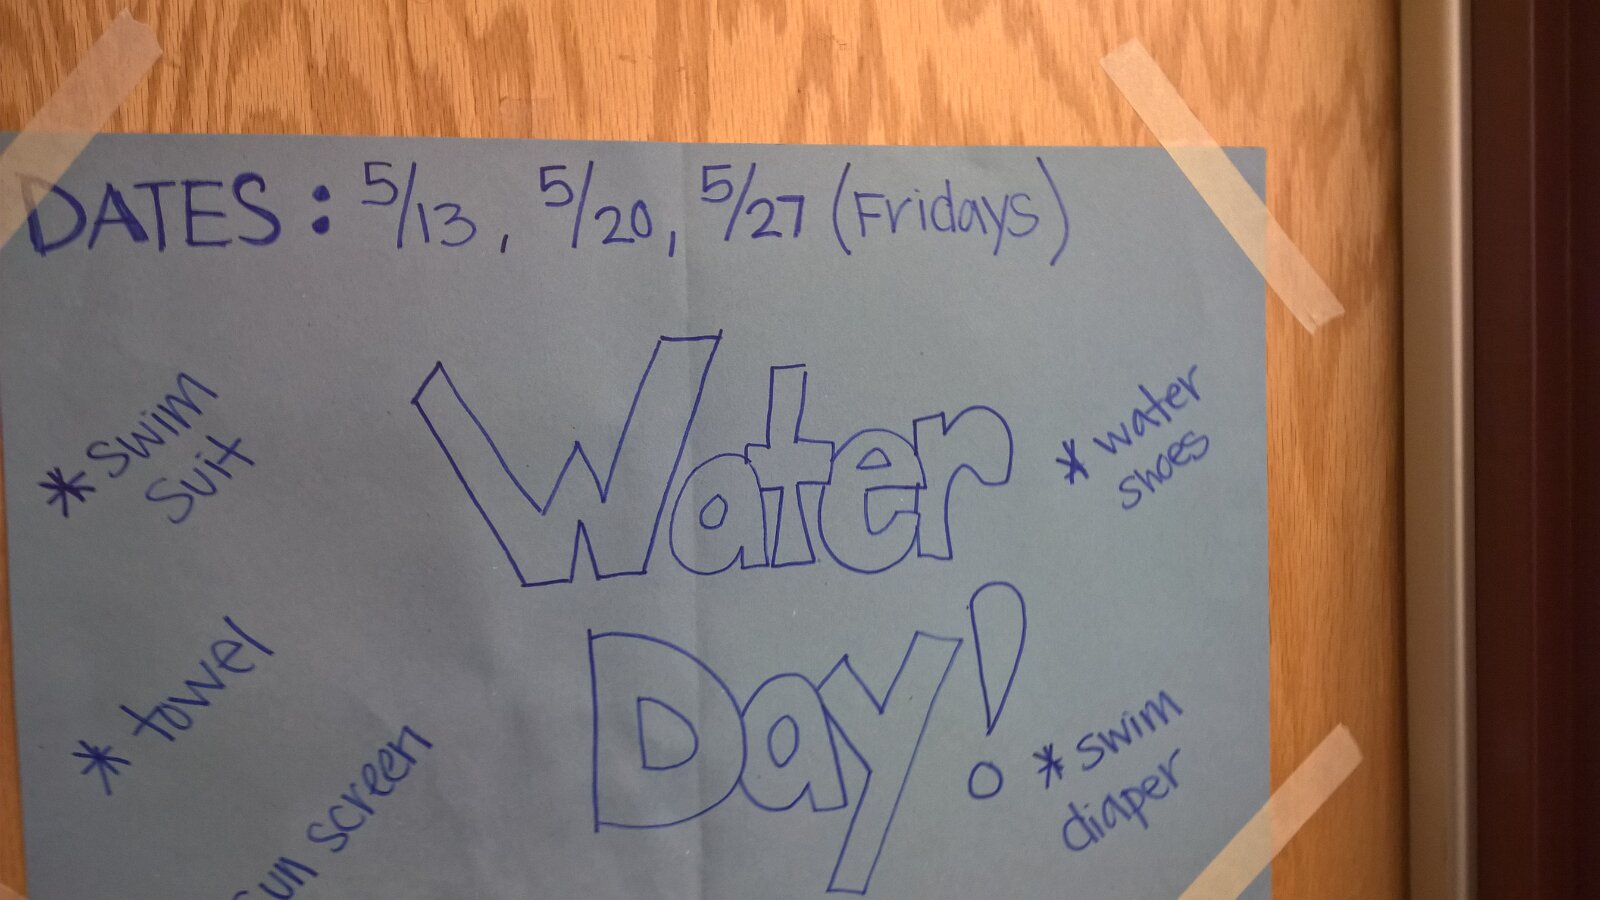 DATES: 5/13, 5/20, 5/27 (Fridays)
* swim
suit
Water
Day!
* water
shoes
* towel
sun screen
* swim
diaper